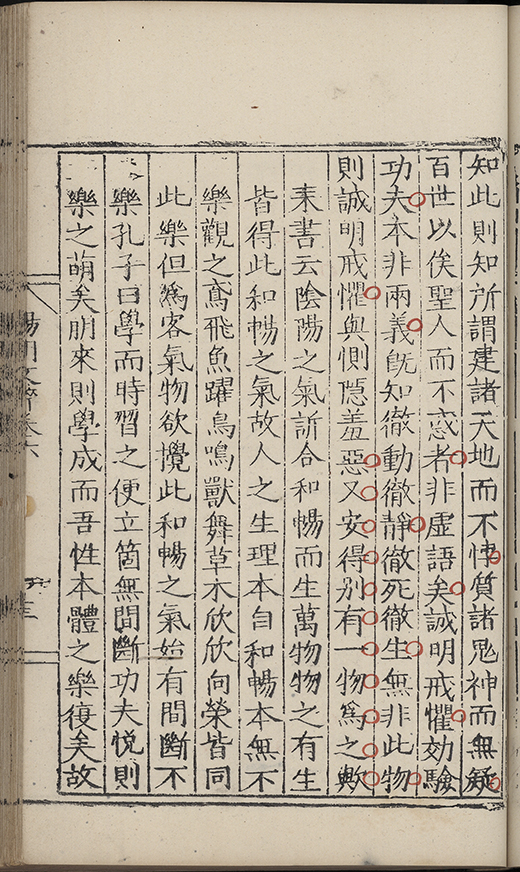 知此則知所謂建諸天地而不悖質諸鬼神而無疑
百世以俟聖人而不惑者非虛語矣誠明戒懼効驗
功夫本非兩義旣知徹動徹靜徹死徹生無非此物
則誠明戒懼與惻隱羞惡又安得別有一物爲之歟
耒書云陰陽之氣訢合和暢而生萬物物之有生
皆得此和暢之氣故人之生理本自和暢本無不
樂觀之鳶飛魚躍鳥鳴獸舞草木欣欣向榮皆同
此樂但爲客氣物欲攪此和暢之氣始有間斷不
樂孔子曰學而時習之便立箇無間斷功夫悅則
樂之萌矣朋來則學成而吾性本體之樂復矣故
陽明文粹卷六